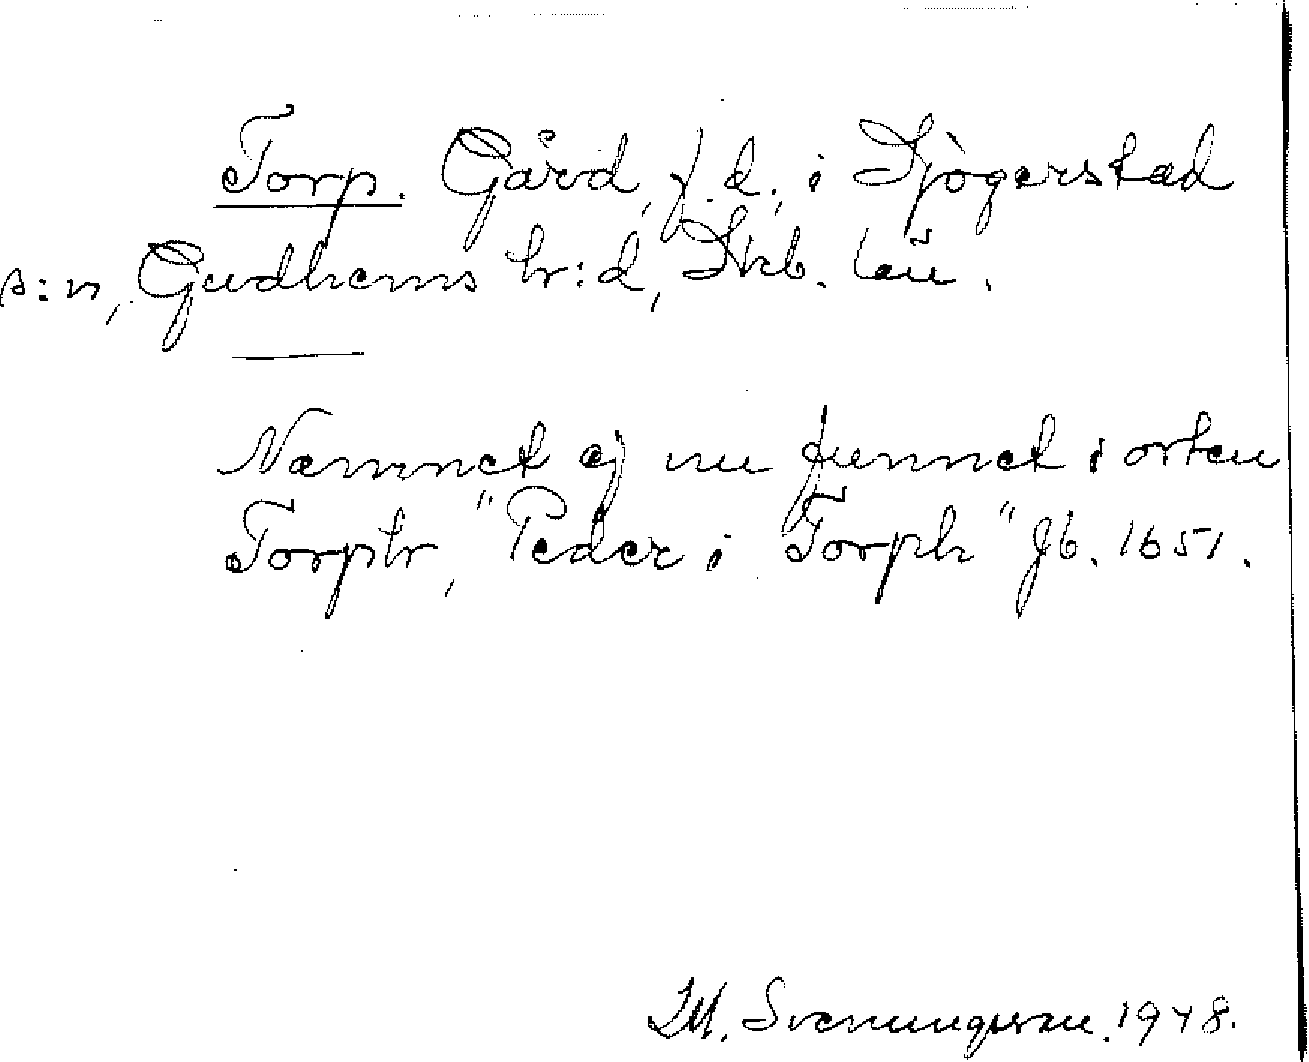 Torp. Gård, f.d., i Sjögerstad
s:n, Gudhems hr:d, Skb. län.
Namnet ej nu funnet i orten
Torph, "Peder i Torph" Jb. 1651.
Svenungsson. 1948.